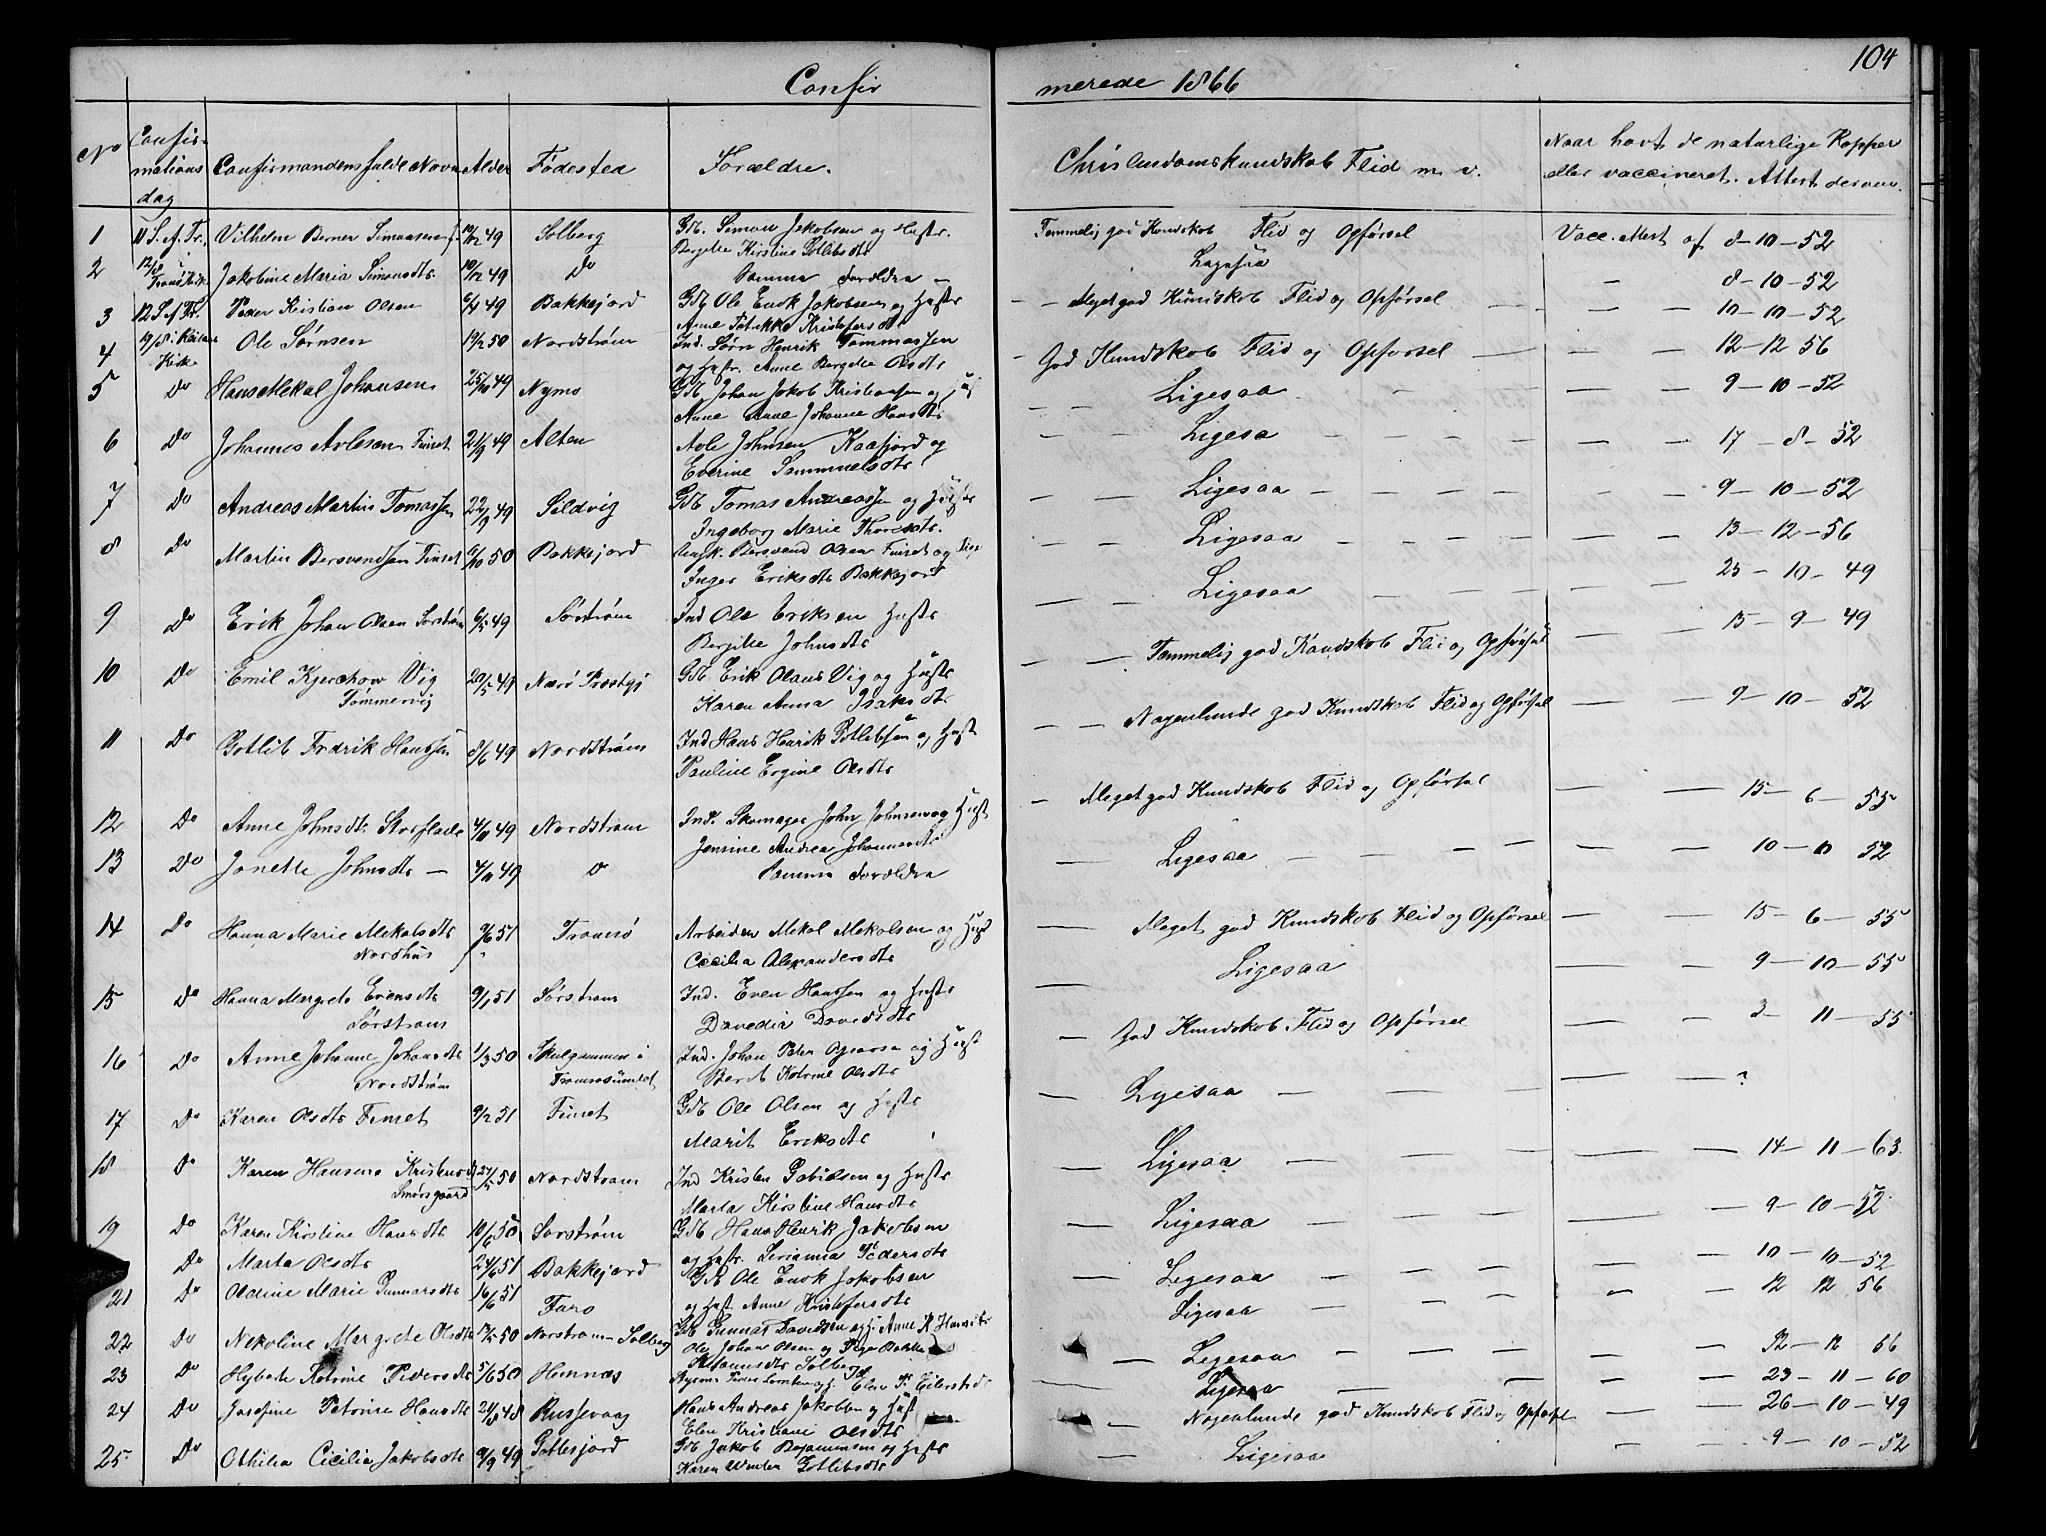 104
Confir merede 1866
No Confir- mations dag Confirmandens fulde Navn Alder Fødested Forældre. Christendomskundskab Flid m. v. Naar havt de naturlige Kopper eller vaccineret. Attest derom.
1 11 S. A. Tr. Vilhelm Berner Simonsen 49 Solberg GM. Simon Jakobsen og Hustr. Temmelig god Kundskab Flid og Opførsel Vacc. Attest af 8-10-52
Kirstine Gotlibsdtr
2 Jakobine Maria Simonsdtr 10/12 49 Do Samme Forældre — 8-10-52
3 12 S. A. Tr. Peder Kristian Olsen 49 Bakkejord GM Ole Enok Jakobsen og Hustr — — Meget god Kundskab Flid og Opførsel — — — 10-10-52
Anne Kristofersdtr
4 Kirke Ole Sørnsen 50 Nordstrøm Ind. Sørn Henrik Tommassen — God Kundskab Flid og Opførsel — — — 12-12 56
og Hustr. Anne Bergitte Olsdtr
5 Do Hans Mekal Johansen 25/10 49 Nymo GM Johan Jakob Kristiansen og — — Ligesaa — — — 9-10-52
Anne Johanne Hansdtr
6 Do Johannes Avlesen Finset 21/9 49 Alten Avle Johnsen Kaafjord og — — Ligesa — — — 17-8-52
Everine Sammuelsdtr
7 Do Andreas Martin Tomassen 22/9 49 Sildvig GM Tomas Andreassen og Hustr — — Ligesaa — — — 9-10-52
Ingeborg Marie
8 Do Martin Bersvendsen Finset 50 Bakkejord Ungk. Bersvend Olsen Finset og Pige — — Ligesaa — — — 13-12-56
Inger Eriksdtr Bakkejord
9 Do Erik Johan Olsen Sørstrøm 49 Sørstrøm Ind Ole Eriksen Hustr — — Ligesaa — — 25-10-49
Bergitte Johnsdtr
10 Do Emil Kjerchow Vig 20/5 49 Nærø Prestgj GM Erik Olaus Vig og Hustr — — Temmelig god Kundskab Flid og Opførsel — — 15-9-49
Tømmervig Karen Anna Isaksdtr
11 Do Gotlib Fredrik Hanssen 8/6 49 Nordstrøm Ind Hans Henrik Gotlibsen og Hustr — — Nogenlunde god Kundskab Flid og Opførsel — — 9-10-52
Pauline Ergine Olsdtr
12 Do Anne Johnsdtr Storslette 4/11 49 Nordstrøm Ind. Skomager John Johnsen og Hust — Meget god Kundskab Flid og Opførsel — — 15-6-55
Jensine Andrea Johannesdtr
13 Do Janette Johnsdtr — 4/11 49 Do Samme Forældre — Ligesaa — — — 10-10 52
14 Do Hanna Marie Mekalsdtr 51 Tromsø Arbeider Mekal Mekalsen og Hust — Meget god Kundskab Flid og Opførsel — — 15-6-55
Nordhus Cecilia Alexandersdtr
15 Do Hanna Margrete Evensdtr 9/1 51 Sørstrøm Ind. Even Hanssen og Hustr — Ligesaa — — 9-10-55
Sørstrøm Davedia Davedsdtr
16 Do Anne Johanne Johansdtr 1/3 50 Ind. Johan Peter og Hust — God Kundskab Flid og Opførsel — — 3-11-55
Nordstrøm Tromsøsundet Berit Katrine Olsdtr
17 Do Karen Olsdtr Finset 9/2 51 Finset GM Ole Olsen og Hustr — Ligesaa — — — ?
Marit Eriksdtr
18 Do Karen Hansine Kristensdtr 50 Nordstrøm Ind Kristen og Hustr — Ligesaa — — — 14-11-63
Smørsgaard Marta Kirstine Hansdtr
19 Do Karen Kirstine Hansdtr 10/6 50 Sørstrøm GM Hans Henrik Jakobsen — Ligesaa — — — 9-10-52
og Hustr. Serianna Pedersdtr
Do Marta Olsdtr 24/6 51 Bakkejord GM Ole Enok Jakobsen — Ligesaa — — — 10-10-52
og Hust Anne Kristofersdtr
21 Do Oldine Marie Gunnarsdtr 16/6 51 Farø GM Gunnar Davidsen og H. Anne K. Hansdtr Ligesaa — — — 12 12 56
22 Do Nekoline Margrete Olsdtr 50 Norstrøm-Solberg Ole Johan Olsen og Pige — Ligesaa — — — 12-12 56
Solberg
23 Do Katrine Pedersdtr 5/6 50 Hemnæs — Ligesaa — — — 23-11-60
24 Do Josefine Petrine Hansdtr 48 Russevaag Hans Andreas Jakobsen og Hust — Nogenlunde god Kundskab Flid og Opførsel — — 26-10-49
Elen Kristiane Olsdtr
25 Do Othilia Cicilia Jakobsdtr 9/9 49 Gottesjord GM Jakob Benjaminsen og Hustr — Ligesaa — — 9-10-52
Karen Gotlibsdtr